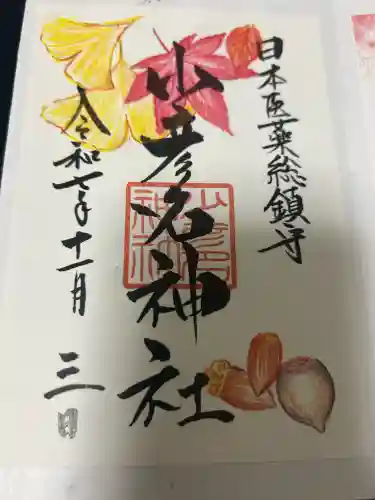 日本医薬総鎮守
少彦名神社
少彦名
神社
令和七年十一月三日